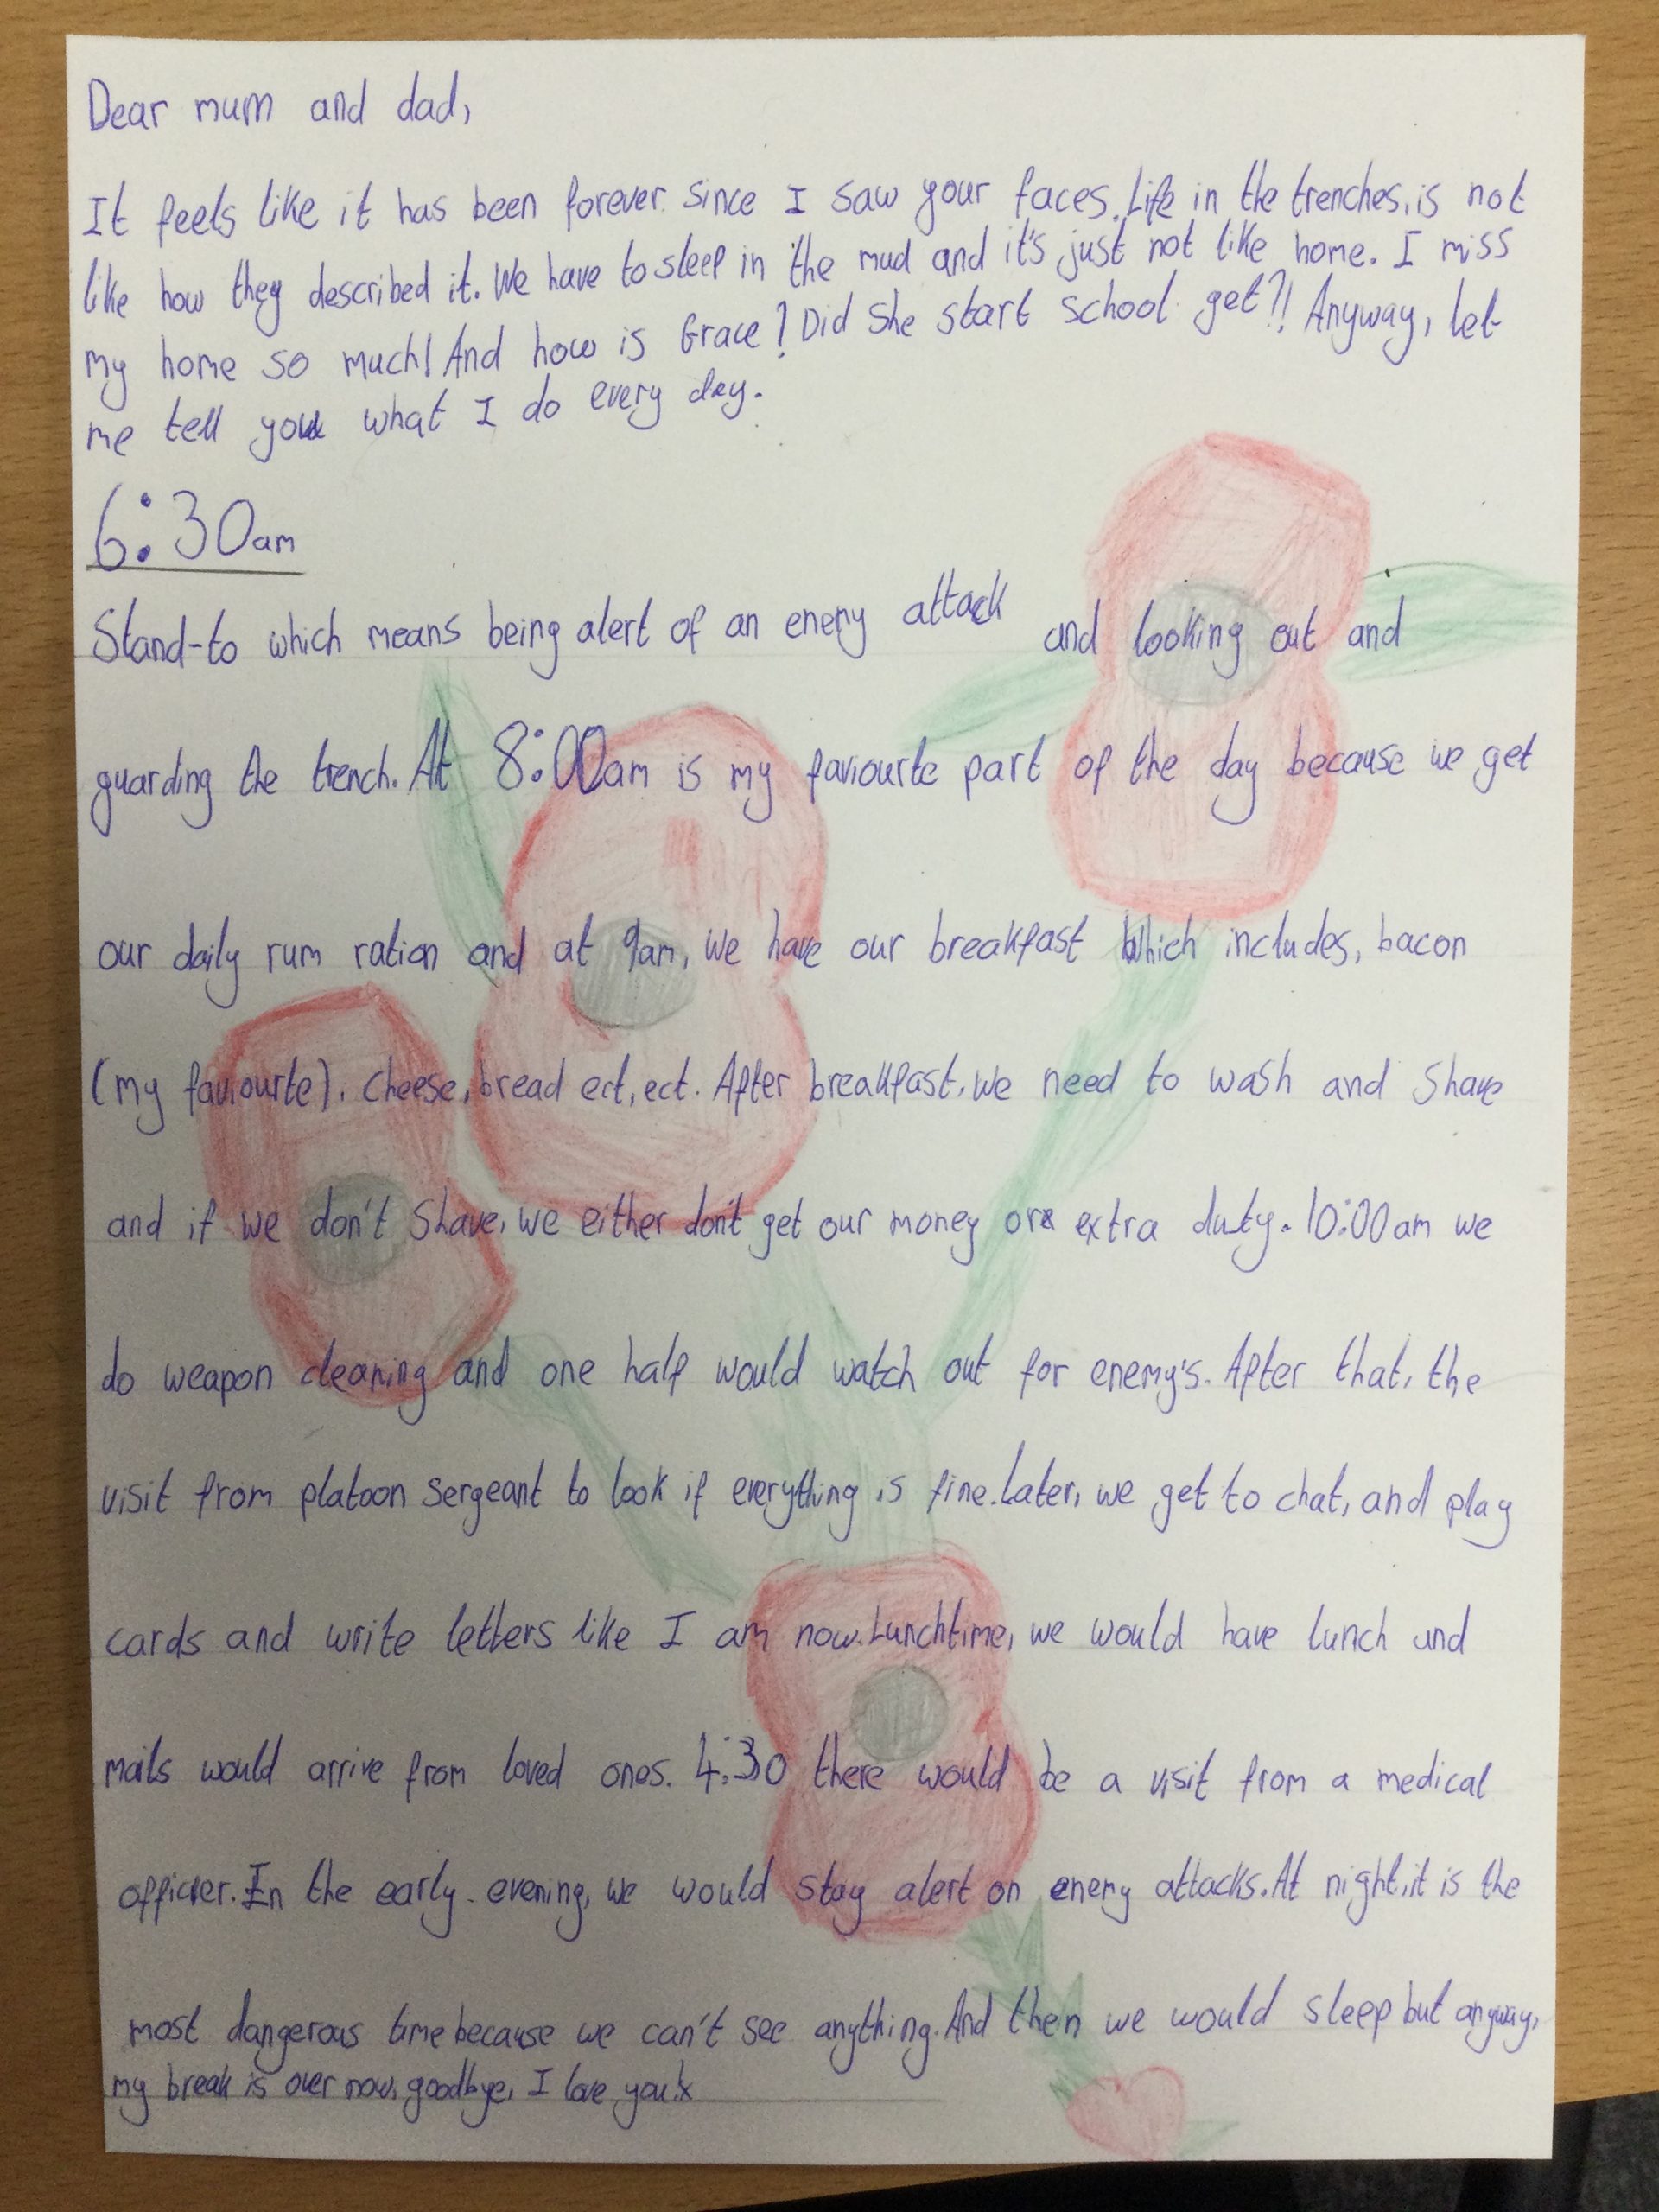 Dear mum and dad,
It feels like it has been forever since I saw your faces. Life in the trenches, is not
like how they described it. We have to sleep in the mud and it's just not like home. I miss
my home so much! And how is Grace? Did she start school get?!! Anyway, let
me tell you what I do every day.
6:30am
Stand-to which means being alert of an enemy attack and looking out and
guarding the trench. At 8:00am is my faviourte part of the day because we get
our daily rum ration and at 9am, we have our breakfast which includes, bacon
(my faviourte), cheese, bread ect, ect. After breakfast, we need to wash and shave
and if we don't shave, we either don't get our money or extra duty. 10:00am we
do weapon cleaning and one half would watch out for enemy's. After that, the
visit from platoon sergeant to look if everything is fine. Later, we get to chat, and play
cards and write letters like I am now. Lunchtime, we would have lunch and
mails would arrive from loved ones. 4:30 there would be a visit from a medical
officer. In the early evening, we would stay alert on enemy attacks. At night, it is the
most dangerous time because we can't see anything. And then we would sleep but anyway,
my break is over now, goodbye, I love you!x